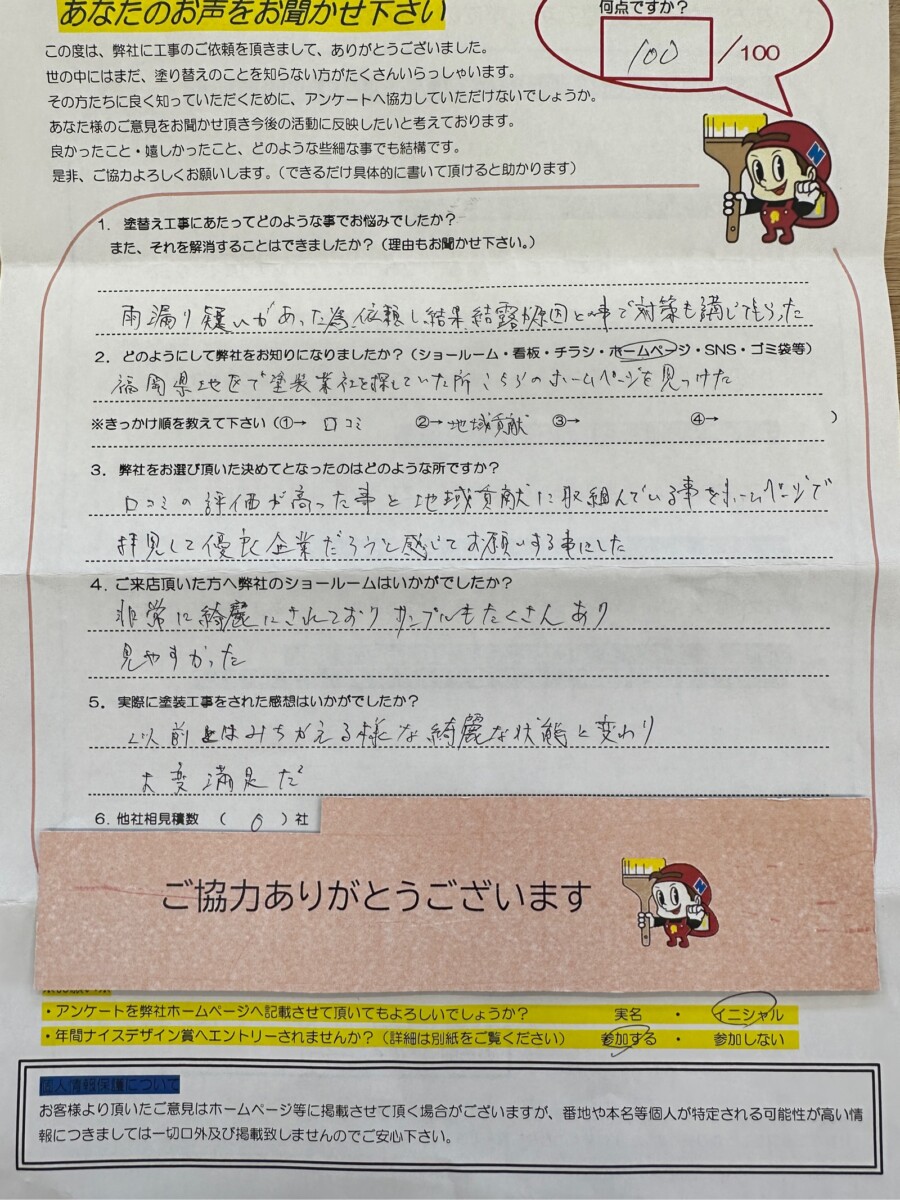 あなたのお声をお聞かせ下さい
何点ですか？
100 /100
この度は、弊社に工事のご依頼を頂きまして、ありがとうございました。
世の中にはまだ、塗り替えのことを知らない方がたくさんいらっしゃいます。
その方たちに良く知っていただくために、アンケートへ協力していただけないでしょうか。
あなた様のご意見をお聞かせ頂き今後の活動に反映したいと考えております。
良かったこと・嬉しかったこと、どのような些細な事でも結構です。
是非、ご協力よろしくお願いします。（できるだけ具体的に書いて頂けると助かります）
N
1. 塗替え工事にあたってどのような事でお悩みでしたか？
また、それを解消することはできましたか？（理由もお聞かせ下さい。）
雨漏り疑いがあった為依頼し結果結露が原因との事で対策も講じてもらった
2. どのようにして弊社をお知りになりましたか？（ショールーム・看板・チラシ・ホームページ・SNS・ゴミ袋等）
福岡県地区で塗装業社を探していた所こちらのホームページを見つけた
※きっかけ順を教えて下さい（①→ 口コミ ②→ 地域貢献 ③→ ④→ ）
3. 弊社をお選び頂いた決めてとなったのはどのような所ですか？
口コミの評価が高った事と地域貢献に取組んでいる事をホームページで
拝見して優良企業だろうと感じてお願いする事にした
4. ご来店頂いた方へ弊社のショールームはいかがでしたか？
非常に綺麗にされておりサンプルもたくさんあり
見やすかった
5. 実際に塗装工事をされた感想はいかがでしたか？
以前とはみちがえる様な綺麗な状態と変わり
大変満足だ
6. 他社相見積数 （ 0 ）社
ご協力ありがとうございます
N
・アンケートを弊社ホームページへ記載させて頂いてもよろしいでしょうか？ 実名 ・ イニシャル
・年間ナイスデザイン賞へエントリーされませんか？（詳細は別紙をご覧ください） 参加する ・ 参加しない
個人情報保護について
お客様より頂いたご意見はホームページ等に掲載させて頂く場合がございますが、番地や本名等個人が特定される可能性が高い情
報につきましては一切口外及び掲載致しませんのでご安心下さい。